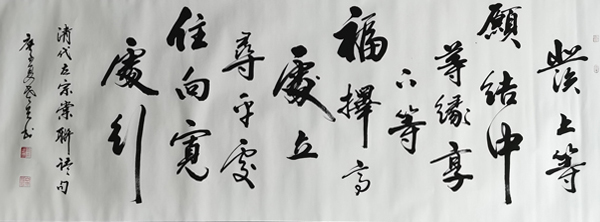 發上等
願结中
等緣享
下等
福擇高
處立
尋平处
住向寬
處行
清代左宗棠聯語句
庚子夏